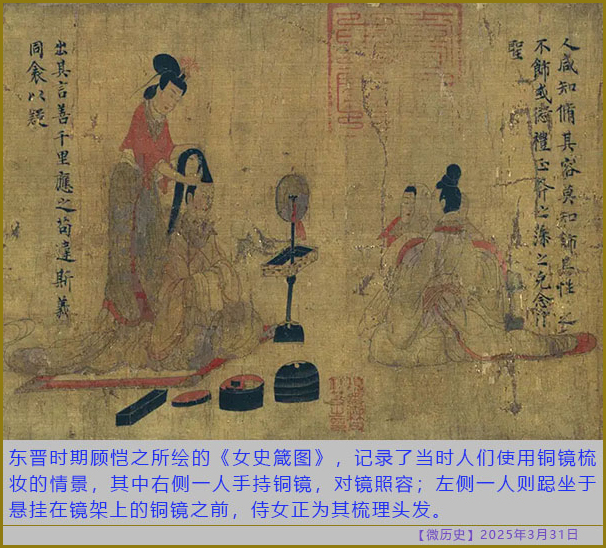 人咸知脩其容莫知飾其性之
不飾或愆禮正斧之藻之克念作
聖
出其言善千里應之苟違斯義
同衾以疑
东晋时期顾恺之所绘的《女史箴图》，记录了当时人们使用铜镜梳
妆的情景，其中右侧一人手持铜镜，对镜照容；左侧一人则跽坐于
悬挂在镜架上的铜镜之前，侍女正为其梳理头发。
【微历史】2025年3月31日